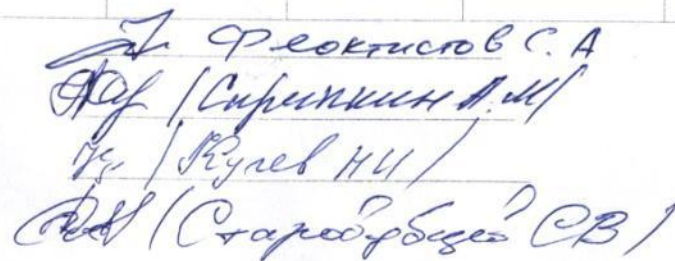 Феоктистов С.А
/Скрипкин А.М/
/Кучев НИ/
/Стародубцев СВ/